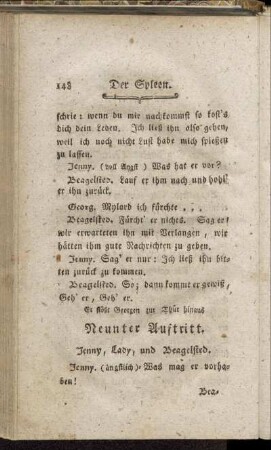 148 Der Spleen.
schrie: wenn du mir nachkommst so kost's
dich dein Leben. Ich ließ ihn also gehen,
weil ich noch nicht Lust habe mich spießen
zu lassen.
Jenny. (voll Angst) Was hat er vor?
Beagelsted. Lauf er ihm nach und hohl'
er ihn zurück.
Georg. Mylord ich fürchte . . .
Beagelsted. Fürcht' er nichts. Sag er:
wir erwarteten ihn mit Verlangen, wir
hätten ihm gute Nachrichten zu geben.
Jenny. Sag' er nur: Ich ließ ihn bit-
ten zurück zu kommen.
Beagelsted. So; dann kommt er gewiß,
Geh' er, Geh' er.
Er stößt Georgen zur Thür hinaus
Neunter Auftritt.
Jenny, Lady, und Beagelsted.
Jenny. (ängstlich) Was mag er vorha-
ben!
Bea-